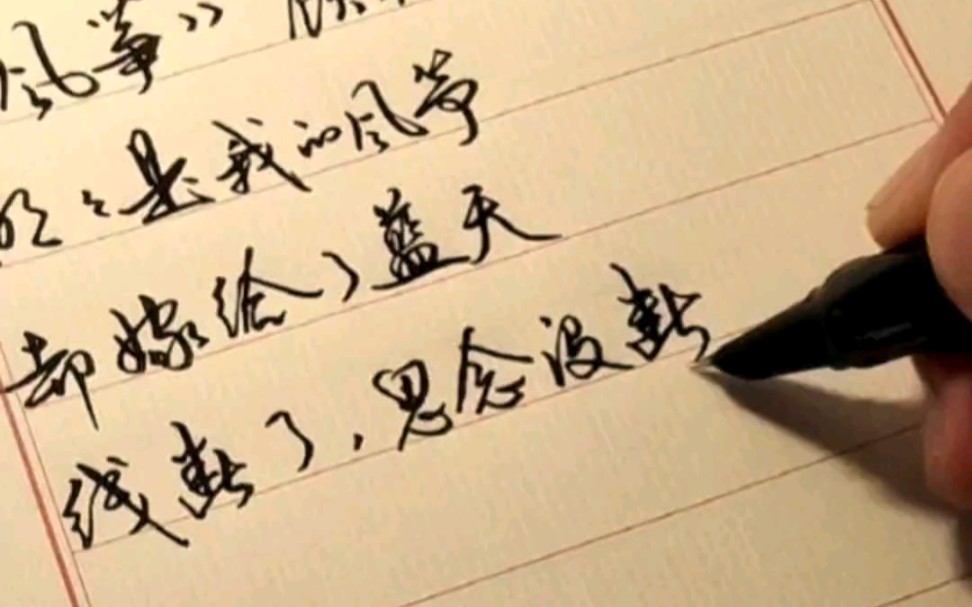 风筝》
明明是我的风筝
却嫁给了蓝天
线断了，思念没断